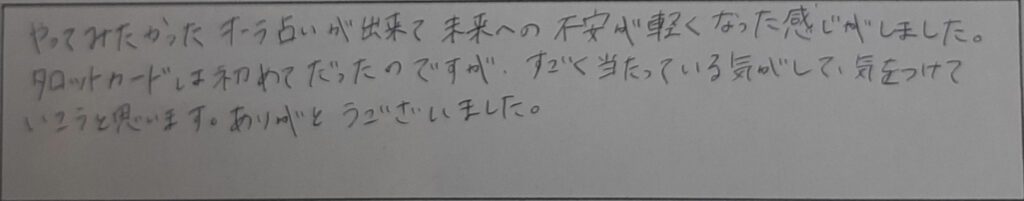 やってみたかったオーラ占いが出来て未来への不安が軽くなった感じがしました。
タロットカードは初めてだったのですが、すごく当たっている気がして、気をつけて
いこうと思います。ありがとうございました。